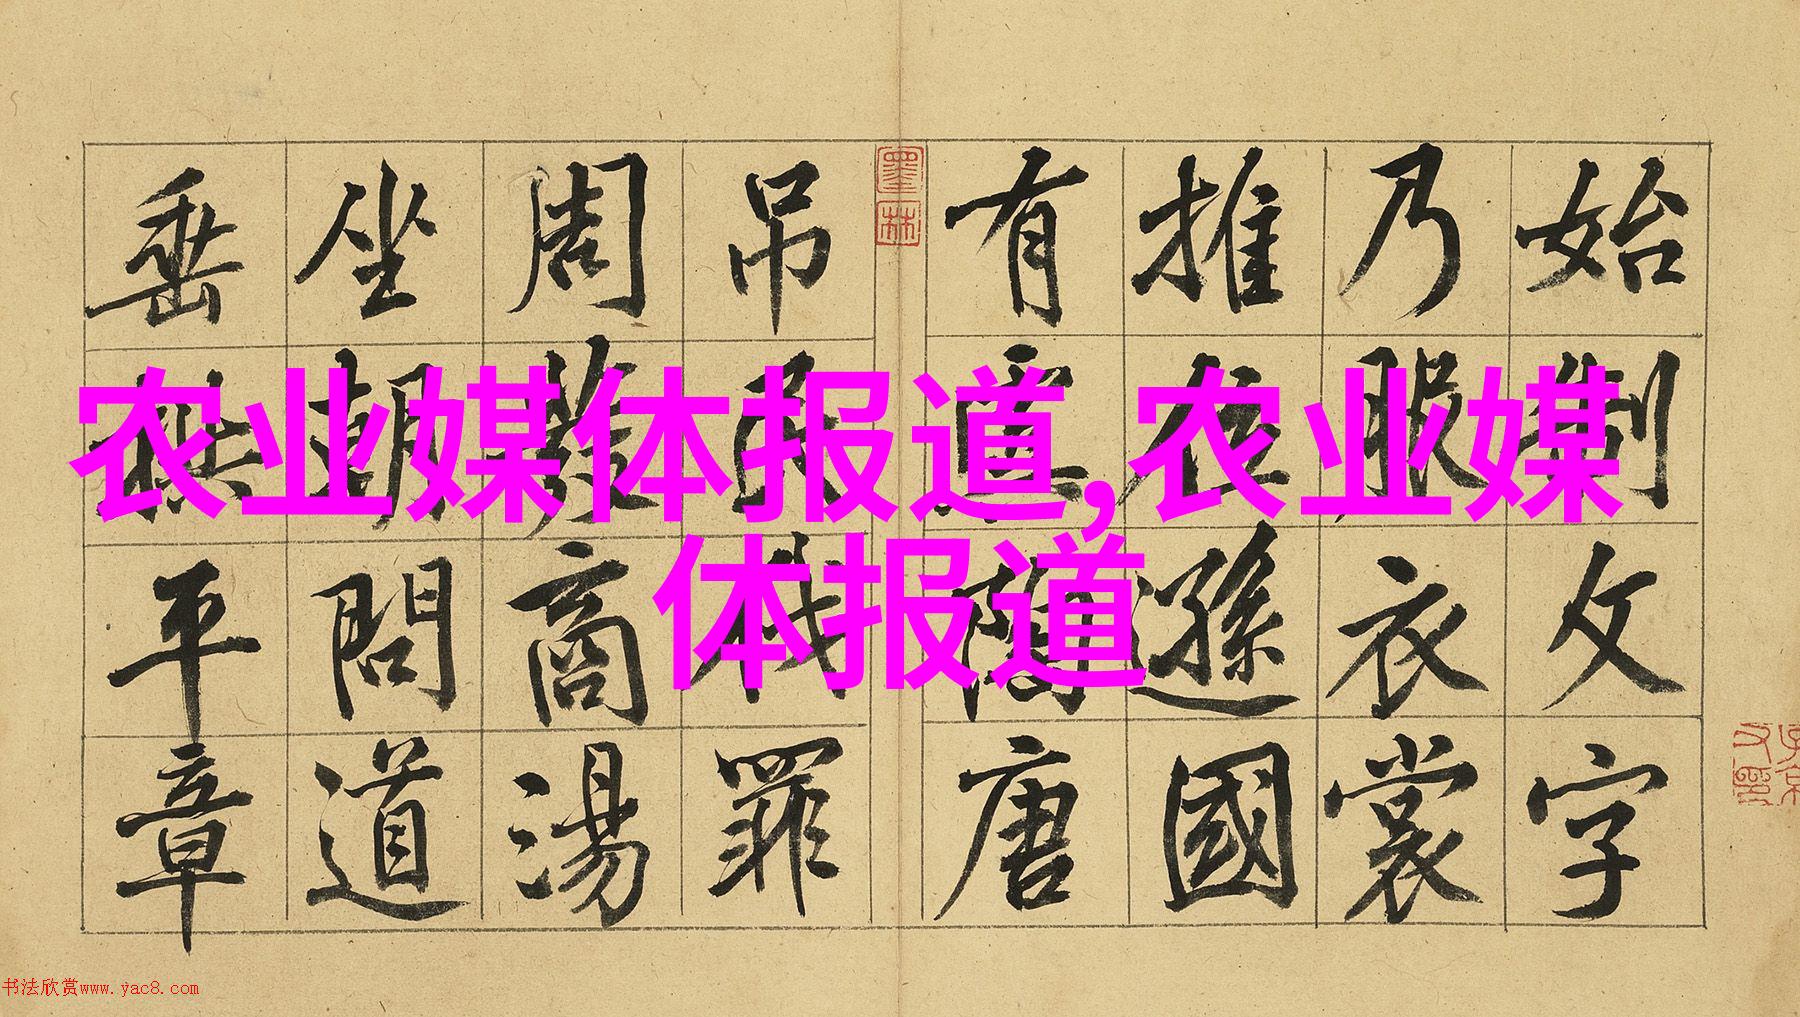 农业媒体报道,农业媒
体报道
始制文字
乃服衣裳
推位遜國
有虞陶唐
吊民伐罪
周發商湯
坐朝問道
垂拱平章
墨林
书法欣赏www.yac8.com